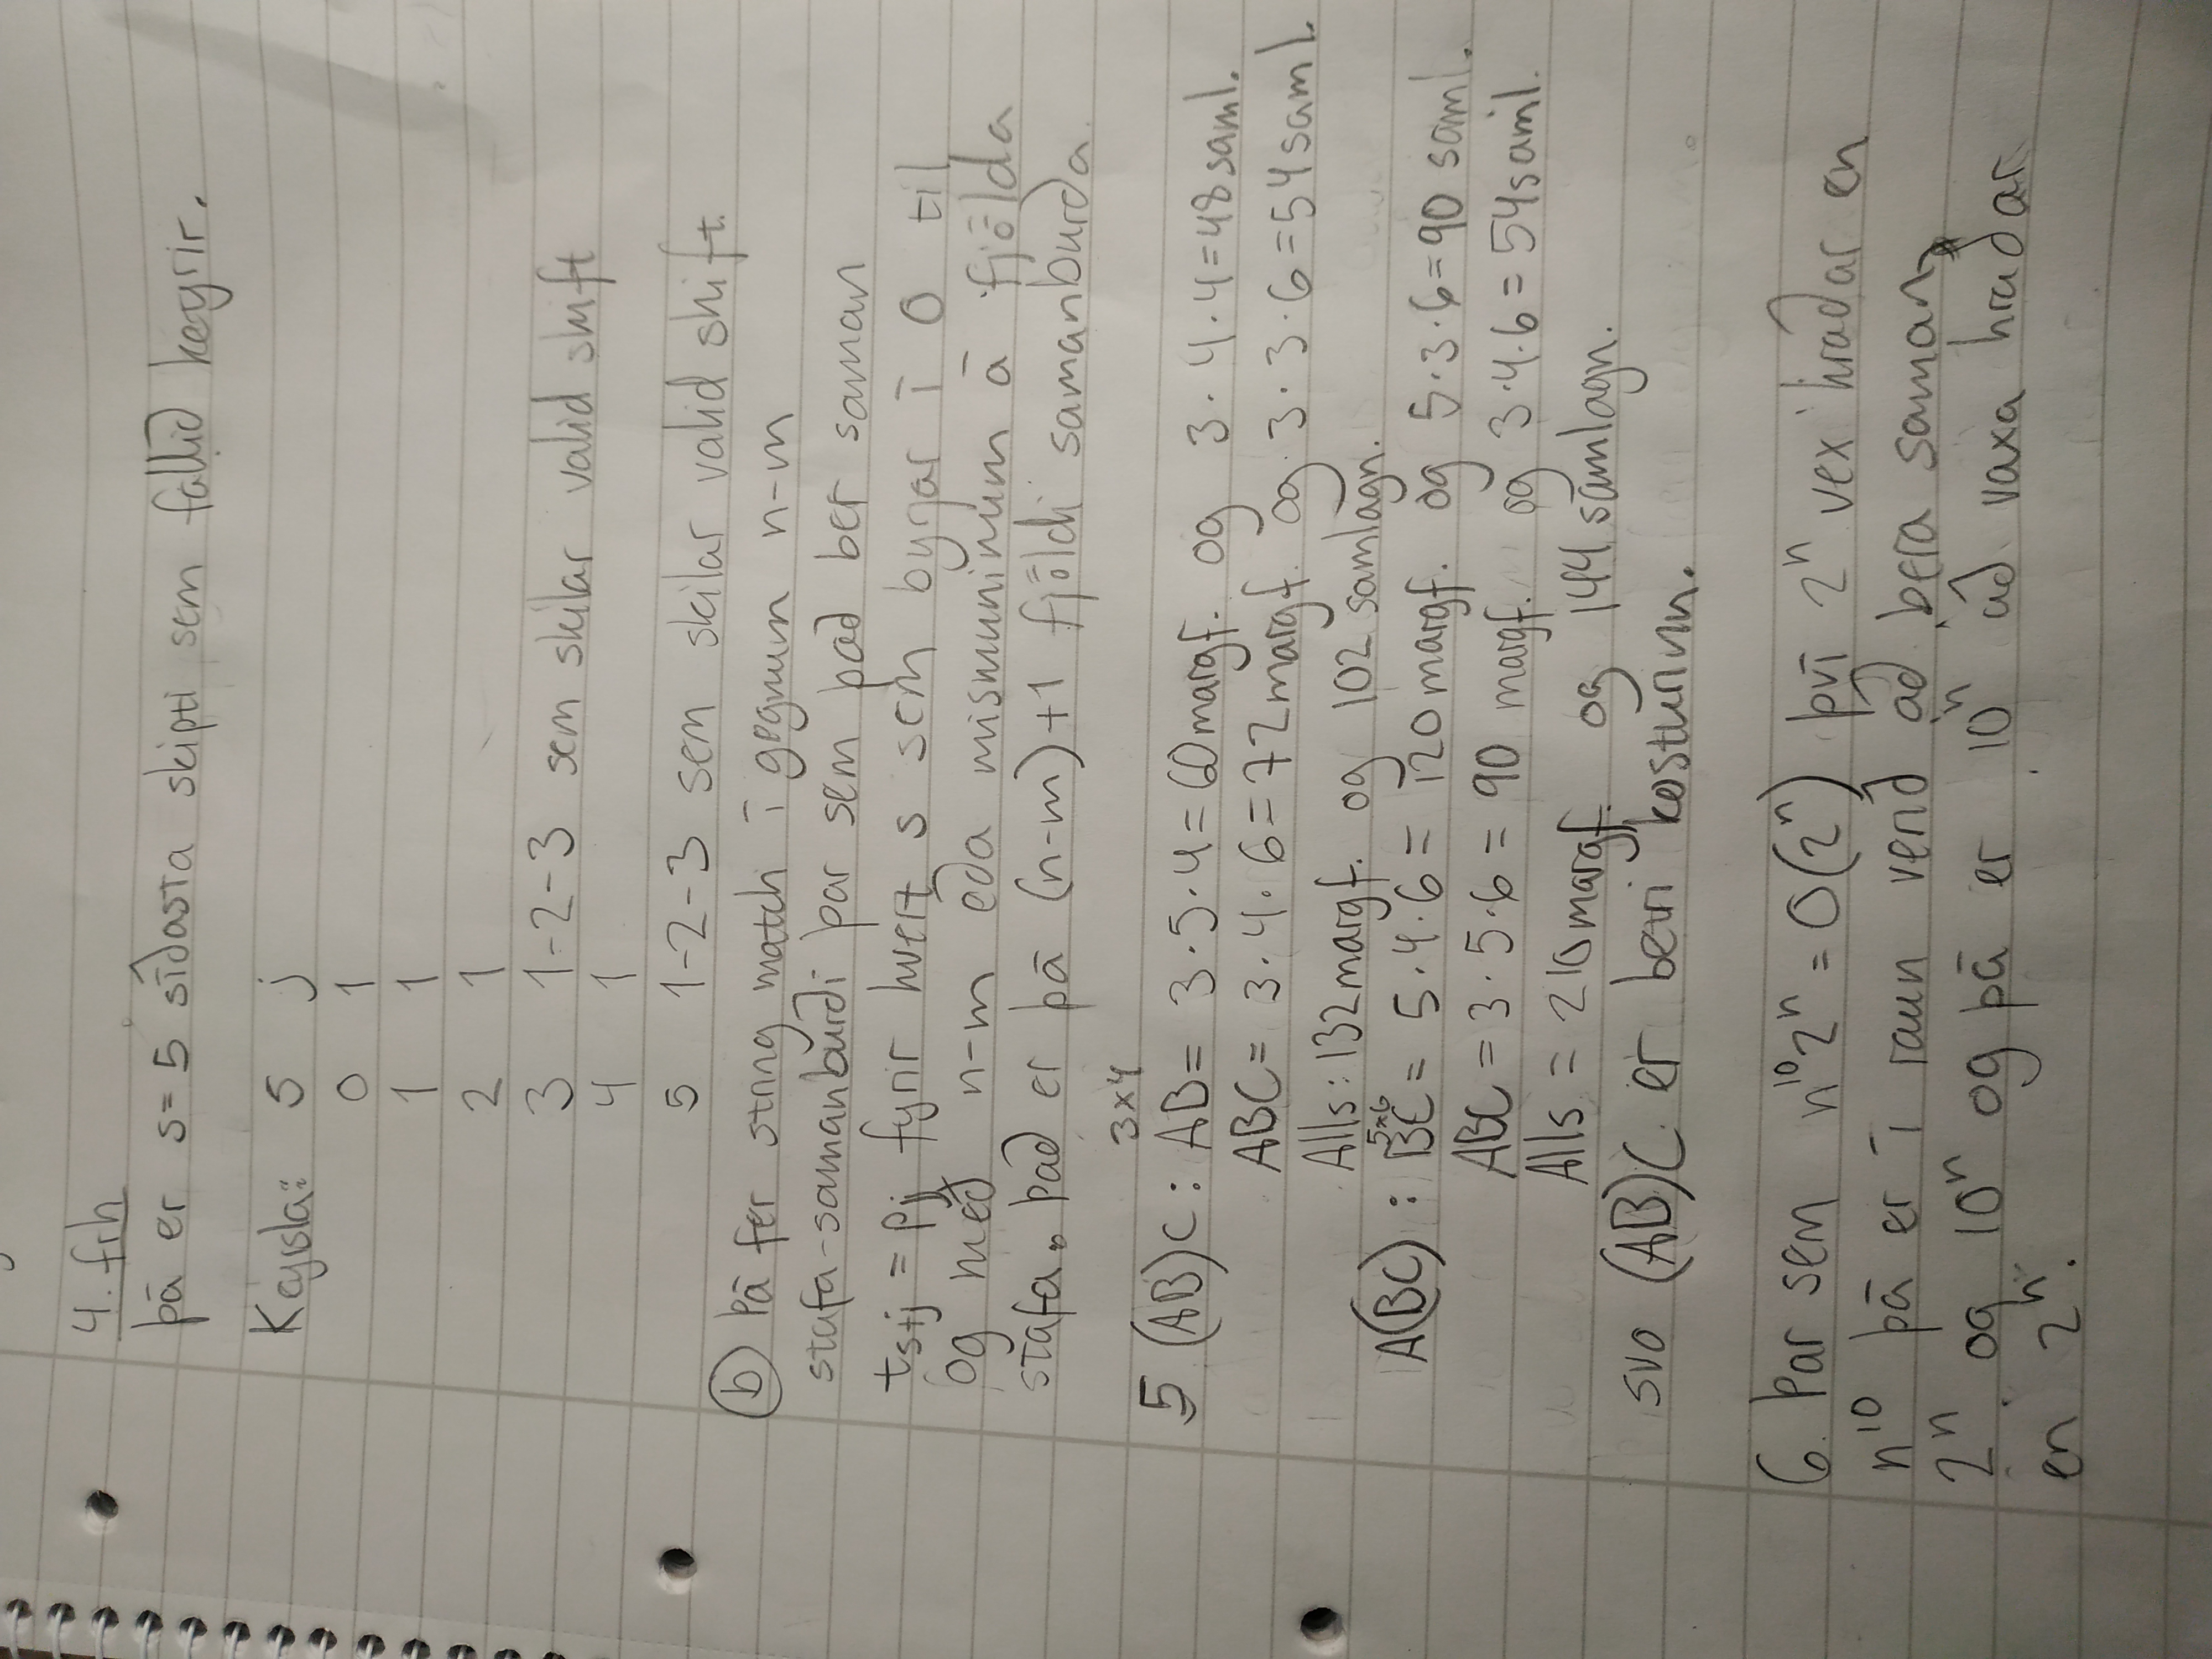 4. frh
þá er s=5 síðasta skipti sem fallið keyrir.
Keyrsla: S j
0 1
1 1
2 1
3 1-2-3 sem skilar valid shift
4 1
5 1-2-3 sem skilar valid shift.
(b) Þá fer string match í gegnum n-m
stafa-samanburði þar sem það ber saman
t_{s+j} = p_j fyrir hvert s sem byrjar í 0 til
og með n-m eða mismuninum á fjölda
stafa. Það er þá (n-m)+1 fjöldi samanburða.
3×4
5 (AB)C: AB= 3·5·4=60margf. og 3·4·4=48saml.
ABC= 3·4·6=72margf. og 3·3·6=54saml.
Alls: 132margf. og 102 samlagn.
5×6
A(BC): BC= 5·4·6= 120margf. og 5·3·6=90 saml.
ABC = 3·5·6= 90 margf. og 3·4·6=54saml.
Alls = 210margf. og 144 samlagn.
svo (AB)C er betri kosturinn.
6. Þar sem n¹⁰2ⁿ = O(2ⁿ) því 2ⁿ vex hraðar en
n¹⁰ þá er í raun verið að bera saman
2ⁿ og 10ⁿ og þá er 10ⁿ að vaxa hraðar
en 2ⁿ.